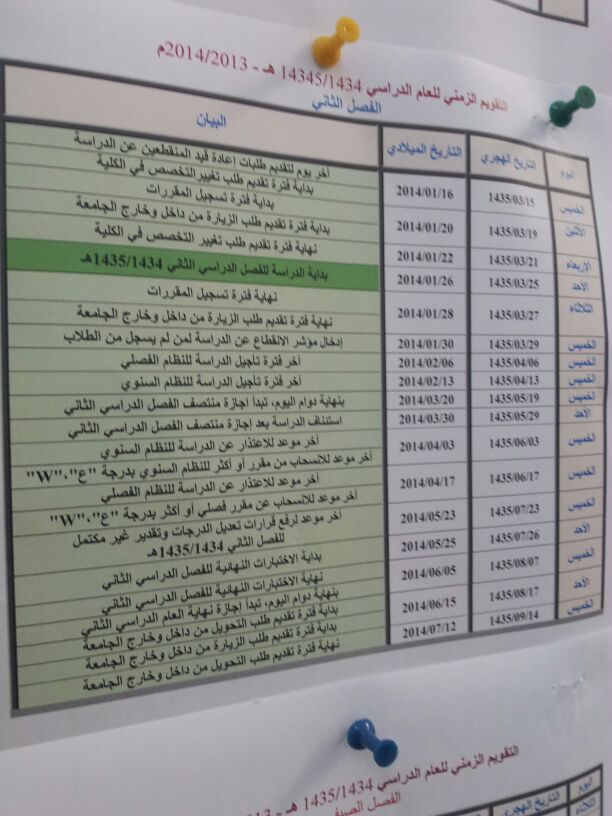 التقويم الزمني للعام الدراسي 14345/1434 هـ - 2014/2013م
الفصل الثاني
اليوم التاريخ الهجري التاريخ الميلادي البيان
آخر يوم لتقديم طلبات إعادة قيد المنقطعين عن الدراسة
الخميس 1435/03/15 2014/01/16 بداية فترة تقديم طلب تغيير التخصص في الكلية
بداية فترة تسجيل المقررات
الأثنين 1435/03/19 2014/01/20 بداية فترة تقديم طلب الزيارة من داخل وخارج الجامعة
الاربعاء 1435/03/21 2014/01/22 نهاية فترة تقديم طلب تغيير التخصص في الكلية
الأحد 1435/03/25 2014/01/26 بداية الدراسة للفصل الدراسي الثاني 1435/1434هـ
الثلاثاء 1435/03/27 2014/01/28 نهاية فترة تسجيل المقررات
نهاية فترة تقديم طلب الزيارة من داخل وخارج الجامعة
الخميس 1435/03/29 2014/01/30 إدخال مؤشر الانقطاع عن الدراسة لمن لم يسجل من الطلاب
الخميس 1435/04/06 2014/02/06 آخر فترة تأجيل الدراسة للنظام الفصلي
الخميس 1435/04/13 2014/02/13 آخر فترة تأجيل الدراسة للنظام السنوي
الخميس 1435/05/19 2014/03/20 بنهاية دوام اليوم، تبدأ اجازة منتصف الفصل الدراسي الثاني
الأحد 1435/05/29 2014/03/30 استئناف الدراسة بعد إجازة منتصف الفصل الدراسي الثاني
الخميس 1435/06/03 2014/04/03 آخر موعد للاعتذار عن الدراسة للنظام السنوي
آخر موعد للانسحاب من مقرر أو أكثر للنظام السنوي بدرجة "ع"،"W"
الخميس 1435/06/17 2014/04/17 آخر موعد للاعتذار عن الدراسة للنظام الفصلي
آخر موعد للانسحاب عن مقرر فصلي أو أكثر بدرجة "ع"،"W"
الخميس 1435/07/23 2014/05/23 آخر موعد لرفع قرارات تعديل الدرجات وتقدير غير مكتمل
للفصل الثاني 1435/1434هـ
الأحد 1435/07/26 2014/05/25 بداية الاختبارات النهائية للفصل الدراسي الثاني
الخميس 1435/08/07 2014/06/05 نهاية الاختبارات النهائية للفصل الدراسي الثاني
بنهاية دوام اليوم، تبدأ إجازة نهاية العام الدراسي الثاني
الأحد 1435/08/17 2014/06/15 بداية فترة تقديم طلب التحويل من داخل وخارج الجامعة
بداية فترة تقديم طلب الزيارة من داخل وخارج الجامعة
الخميس 1435/09/14 2014/07/12 نهاية فترة تقديم طلب التحويل من داخل وخارج الجامعة
التقويم الزمني للعام الدراسي 1435/1434 هـ
الفصل
اليوم التاريخ الهجري
الثلاثاء